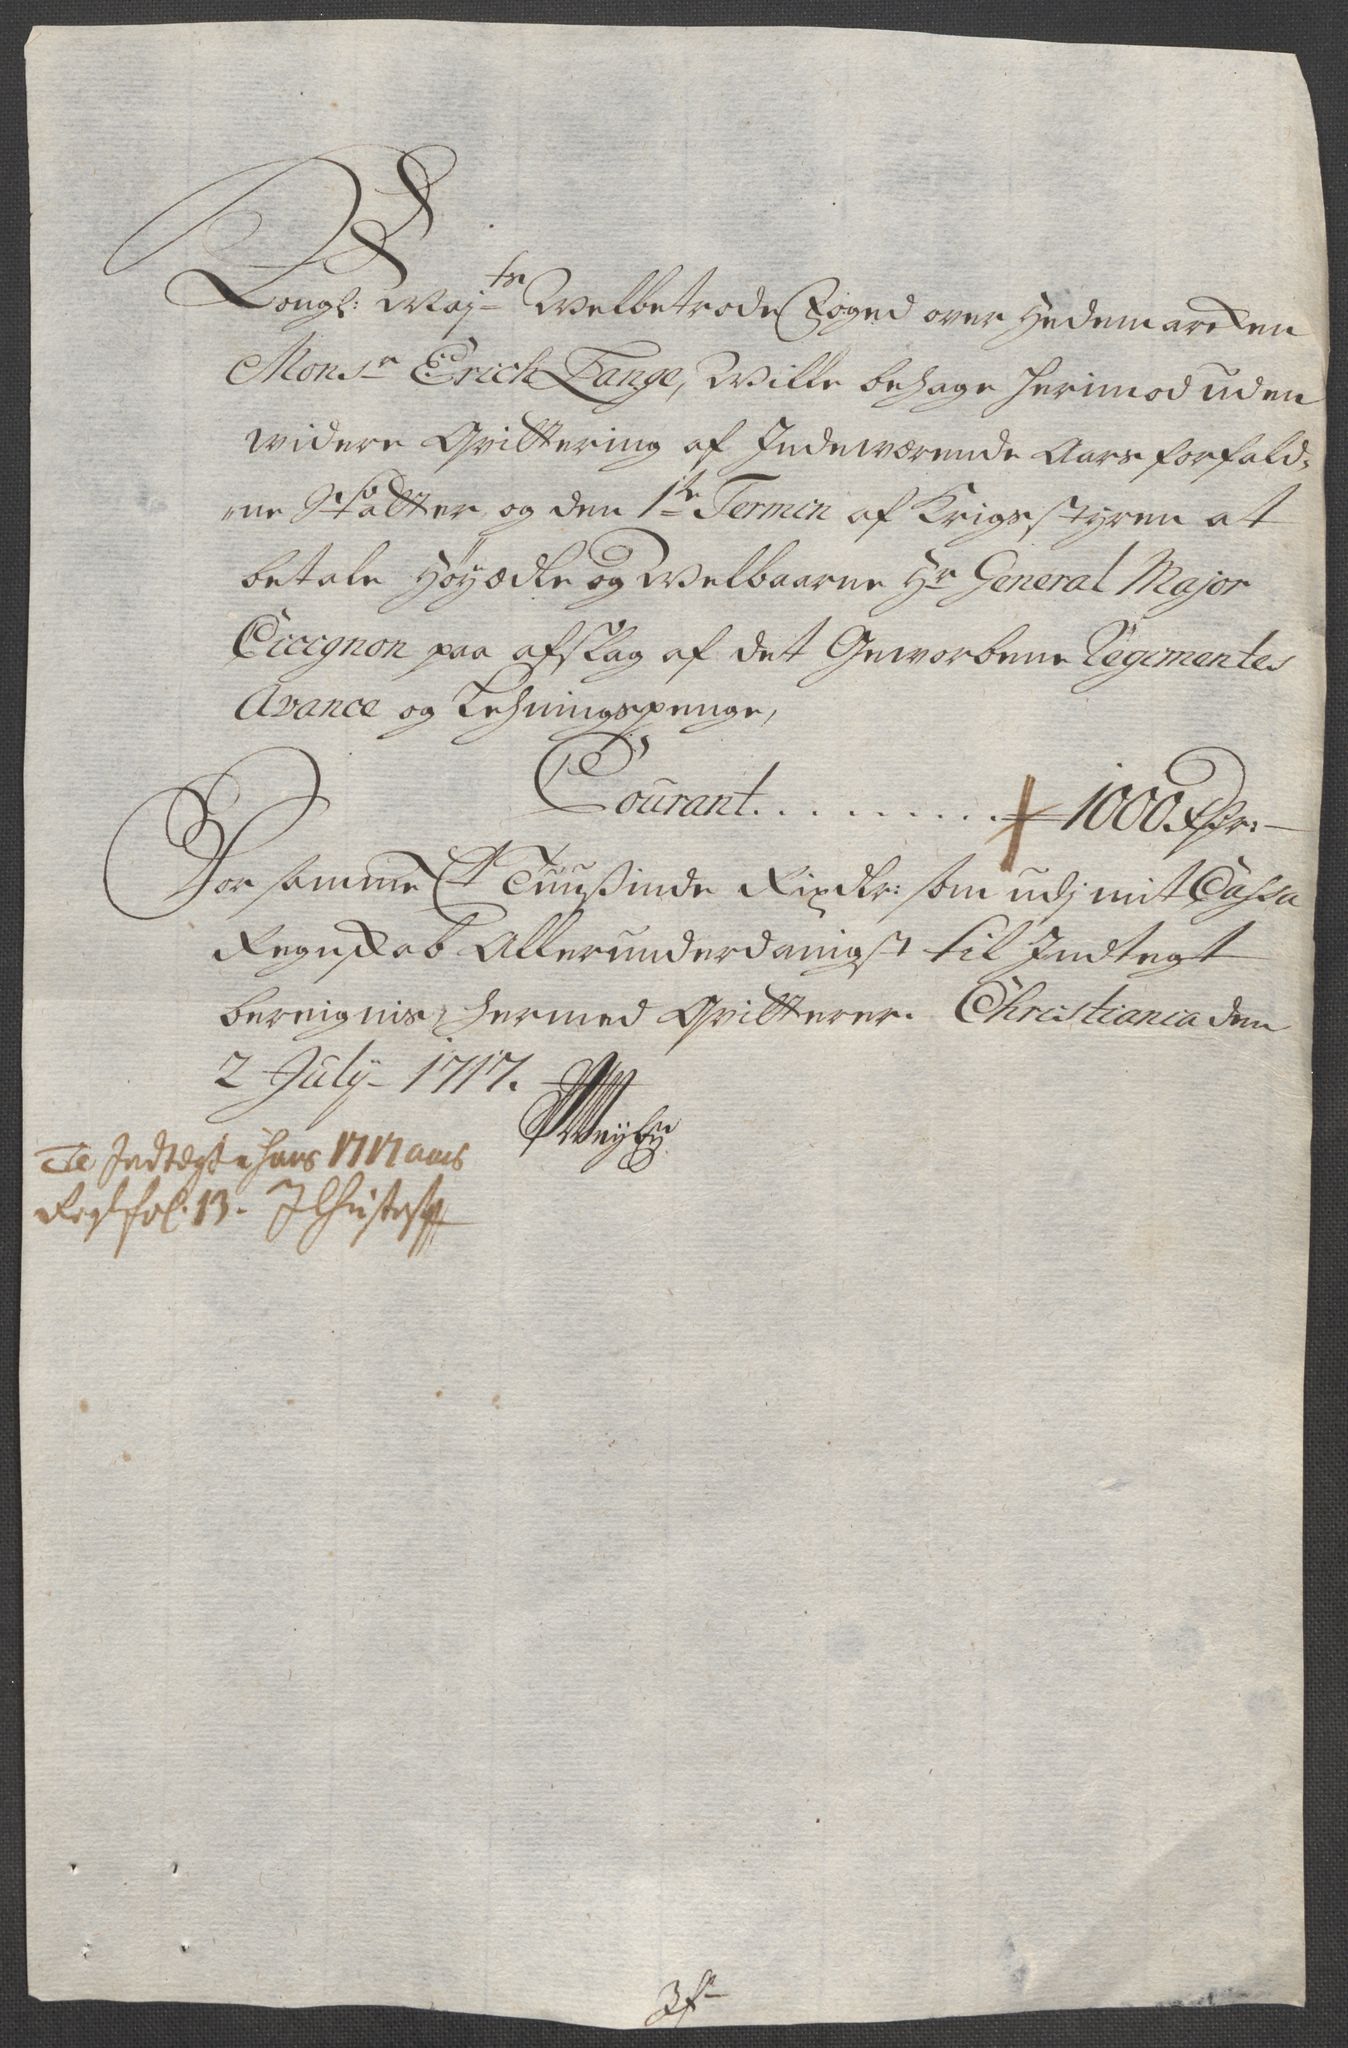 Kongl: Maj:ts Welbetrode Foged over Hedemarcken
Monsr Erich Lange, Wille behage herimod uden
widere Qvittering af Indeværende Aars forfald-
ne Skatter og den 1te Termin af Krigsstyren at
betale Høyædle og Welbaarne Hr General Major
Cicignon paa afslag af det Geworbene Regimentes
Avance og Lehningspenge,
Courant. . . . . . . . . 1000 Rdr:
For samme Et Tuusinde Rixdlr: som udj mit Cassa
Regnskab Allerunderdanigst til Indtegt
bereignis, hermed Qvitterer. Christiania den
2 July 1717.
Te Indtægt i hans 1717 aars
Regl fol. 13.